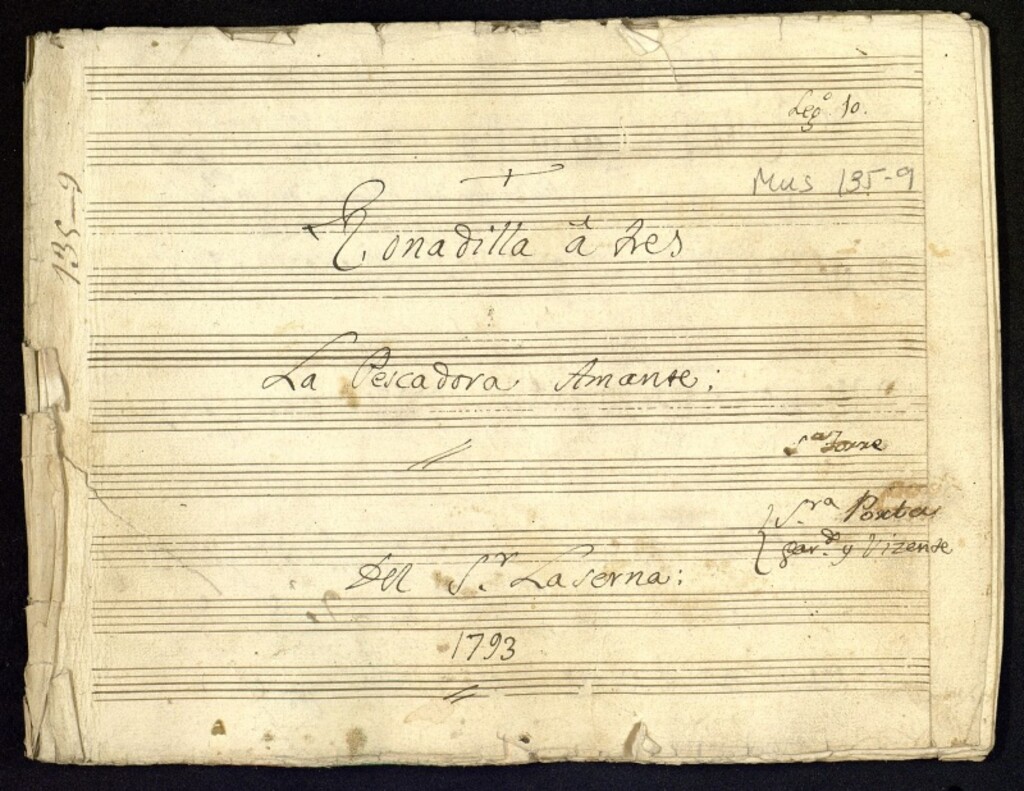 Leg.º 10.
Mus 135-9
135-9
Tonadilla â tres
La Pescadora Amante;
S.ª Torre
S.ra Porta
Gar.do y Vizente
Del S.r Laserna;
1793